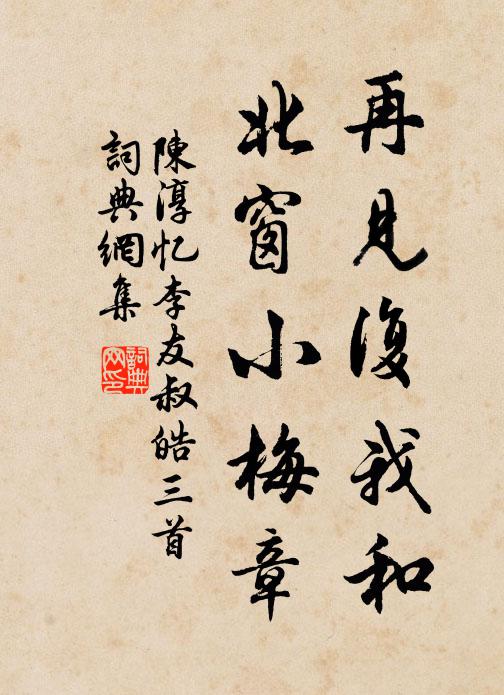 再見復我和
北窗小梅章
陳淳忆李友叔皓三首
詞典網集
詞典網印